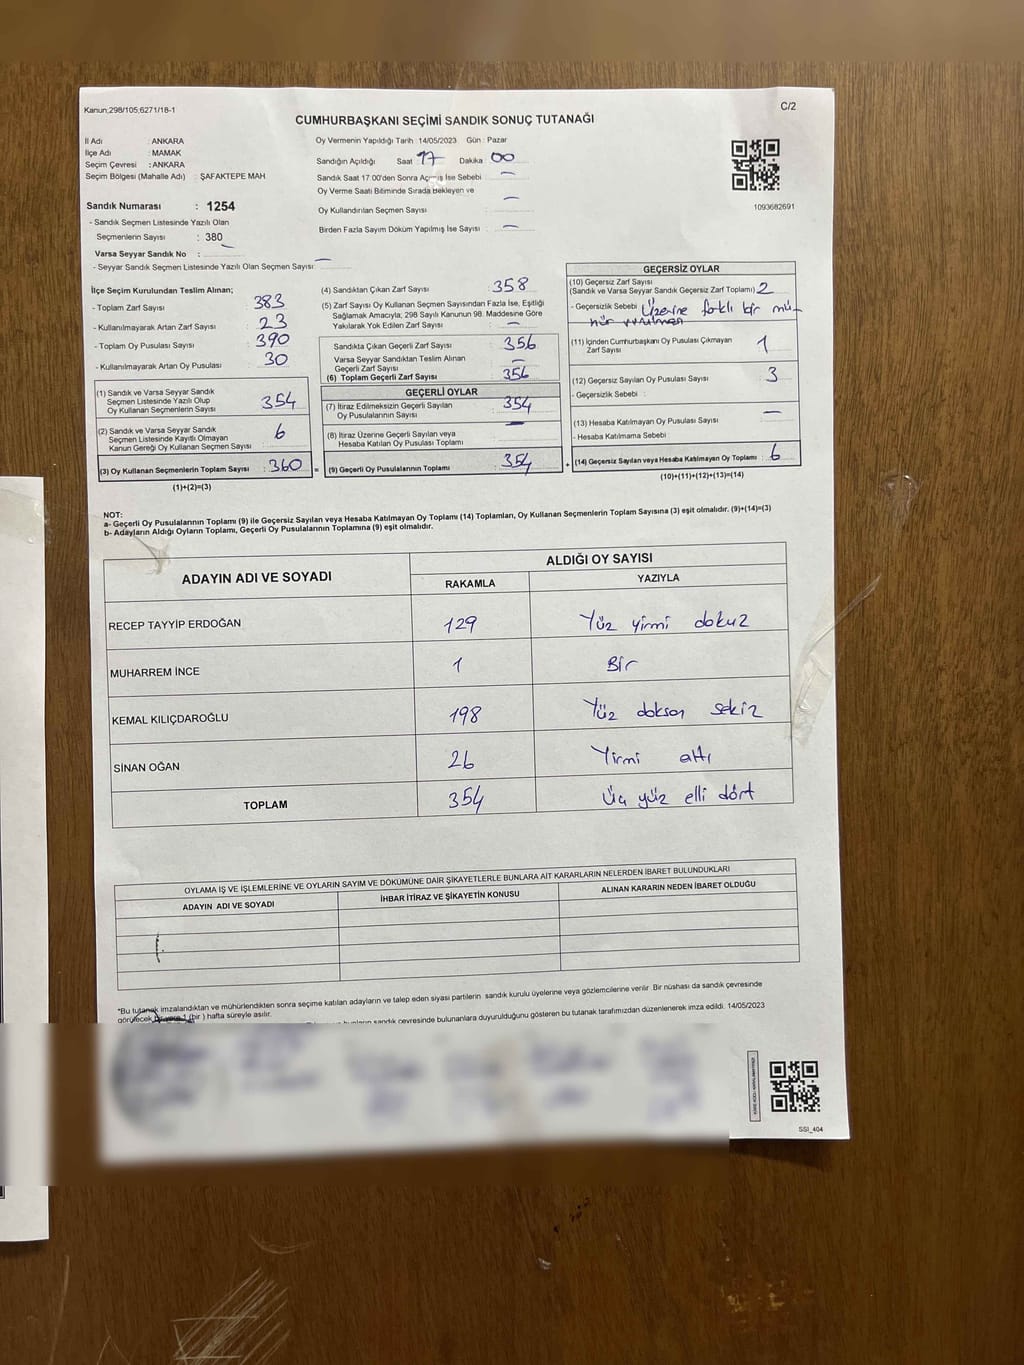 Kanun;298/105;6271/18-1
C/2
CUMHURBAŞKANI SEÇİMİ SANDIK SONUÇ TUTANAĞI
İl Adı : ANKARA
İlçe Adı : MAMAK
Seçim Çevresi : ANKARA
Seçim Bölgesi (Mahalle Adı) : ŞAFAKTEPE MAH
Sandık Numarası : 1254
- Sandık Seçmen Listesinde Yazılı Olan
Seçmenlerin Sayısı : 380
Varsa Seyyar Sandık No :
- Seyyar Sandık Seçmen Listesinde Yazılı Olan Seçmen Sayısı:
Oy Vermenin Yapıldığı Tarih : 14/05/2023 Gün : Pazar
Sandığın Açıldığı Saat 17 Dakika 00
Sandık Saat 17.00'den Sonra Açılmış İse Sebebi :
Oy Verme Saati Bitiminde Sırada Bekleyen ve
Oy Kullandırılan Seçmen Sayısı :
Birden Fazla Sayım Döküm Yapılmış İse Sayısı :
1093682691
İlçe Seçim Kurulundan Teslim Alınan;
- Toplam Zarf Sayısı : 383
- Kullanılmayarak Artan Zarf Sayısı : 23
- Toplam Oy Pusulası Sayısı : 390
- Kullanılmayarak Artan Oy Pusulası : 30
(1) Sandık ve Varsa Seyyar Sandık
Seçmen Listesinde Yazılı Olup
Oy Kullanan Seçmenlerin Sayısı : 354
(2) Sandık ve Varsa Seyyar Sandık
Seçmen Listesinde Kayıtlı Olmayan
Kanun Gereği Oy Kullanan Seçmen Sayısı : 6
(3) Oy Kullanan Seçmenlerin Toplam Sayısı : 360 =
(1)+(2)=(3)
(4) Sandıktan Çıkan Zarf Sayısı : 358
(5) Zarf Sayısı Oy Kullanan Seçmen Sayısından Fazla İse, Eşitliği
Sağlamak Amacıyla; 298 Sayılı Kanunun 98. Maddesine Göre
Yakılarak Yok Edilen Zarf Sayısı : —
Sandıkta Çıkan Geçerli Zarf Sayısı : 356
Varsa Seyyar Sandıktan Teslim Alınan
Geçerli Zarf Sayısı : —
(6) Toplam Geçerli Zarf Sayısı : 356
GEÇERLİ OYLAR
(7) İtiraz Edilmeksizin Geçerli Sayılan
Oy Pusulalarının Sayısı : 354
(8) İtiraz Üzerine Geçerli Sayılan veya
Hesaba Katılan Oy Pusulası Toplamı : —
(9) Geçerli Oy Pusulalarının Toplamı : 354 +
GEÇERSİZ OYLAR
(10) Geçersiz Zarf Sayısı
(Sandık ve Varsa Seyyar Sandık Geçersiz Zarf Toplamı) 2
- Geçersizlik Sebebi : Üzerine farklı bir mü-
hür vurulması
(11) İçinden Cumhurbaşkanı Oy Pusulası Çıkmayan
Zarf Sayısı : 1
(12) Geçersiz Sayılan Oy Pusulası Sayısı : 3
- Geçersizlik Sebebi :
(13) Hesaba Katılmayan Oy Pusulası Sayısı : —
- Hesaba Katılmama Sebebi
(14) Geçersiz Sayılan veya Hesaba Katılmayan Oy Toplamı : 6
(10)+(11)+(12)+(13)=(14)
NOT:
a- Geçerli Oy Pusulalarının Toplamı (9) ile Geçersiz Sayılan veya Hesaba Katılmayan Oy Toplamı (14) Toplamları, Oy Kullanan Seçmenlerin Toplam Sayısına (3) eşit olmalıdır. (9)+(14)=(3)
b- Adayların Aldığı Oyların Toplamı, Geçerli Oy Pusulalarının Toplamına (9) eşit olmalıdır.
ADAYIN ADI VE SOYADI
ALDIĞI OY SAYISI
RAKAMLA YAZIYLA
RECEP TAYYİP ERDOĞAN 129 Yüz yirmi dokuz
MUHARREM İNCE 1 Bir
KEMAL KILIÇDAROĞLU 198 Yüz doksan sekiz
SİNAN OĞAN 26 Yirmi altı
TOPLAM 354 Üç yüz elli dört
OYLAMA İŞ VE İŞLEMLERİNE VE OYLARIN SAYIM VE DÖKÜMÜNE DAİR ŞİKAYETLERLE BUNLARA AİT KARARLARIN NELERDEN İBARET BULUNDUKLARI
ADAYIN ADI VE SOYADI İHBAR İTİRAZ VE ŞİKAYETİN KONUSU ALINAN KARARIN NEDEN İBARET OLDUĞU
*Bu tutanak imzalandıktan ve mühürlendikten sonra seçime katılan adayların ve talep eden siyasi partilerin sandık kurulu üyelerine veya gözlemcilerine verilir. Bir nüshası da sandık çevresinde
görülecek bir yere 1 (bir) hafta süreyle asılır.
sandık çevresinde bulunanlara duyurulduğunu gösteren bu tutanak tarafımızdan düzenlenerek imza edildi. 14/05/2023
SSI_404